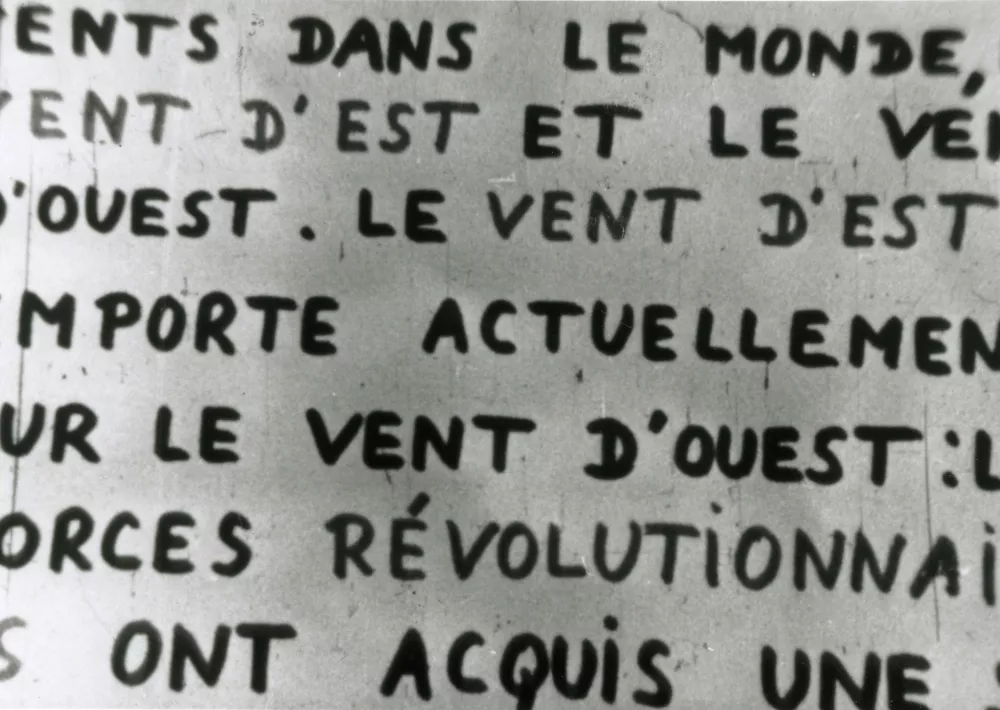 ENTS DANS LE MONDE,
VENT D'EST ET LE VE
D'OUEST. LE VENT D'EST
MPORTE ACTUELLEMEN
UR LE VENT D'OUEST: L
ORCES RÉVOLUTIONNAI
S ONT ACQUIS UNE